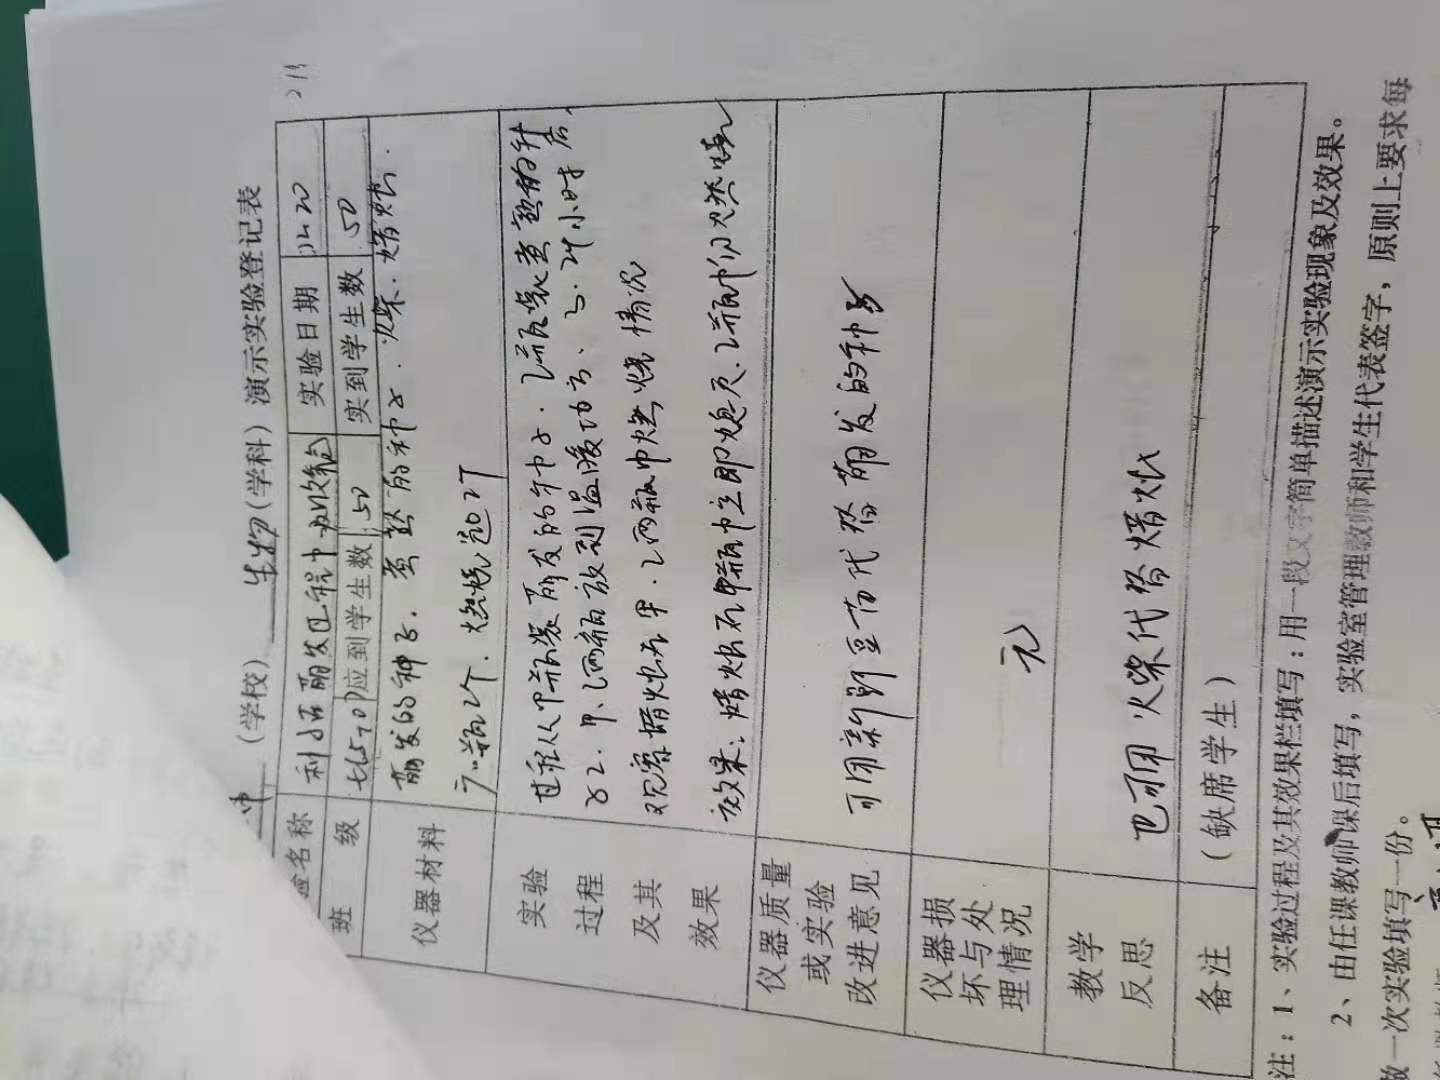 中（学校）生物（学科）演示实验登记表
验名称 种子萌发过程中吸收氧 实验日期 20
班 级 应到学生数 50 实到学生数 50
仪器材料 萌发的种子、煮熟的种子、火柴、蜡烛、
广口瓶2个、燃烧匙2个
实验 甲瓶装萌发的种子、乙瓶装煮熟的种
过程 子2、甲、乙两瓶放到温暖地方、24小时后、
及其 观察蜡烛在甲、乙两瓶中燃烧情况
效果 效果：蜡烛在甲瓶中立即熄灭、乙瓶中仍然燃烧
仪器质量
或实验
改进意见
可用新鲜豆苗代替萌发的种子
仪器损
坏与处
理情况
无
教学
反思
也可用火柴代替蜡烛
备注 （缺席学生）
注：1、实验过程及其效果栏填写：用一段文字简单描述演示实验现象及效果。
2、由任课教师课后填写，实验室管理教师和学生代表签字，原则上要求每
做一次实验填写一份。